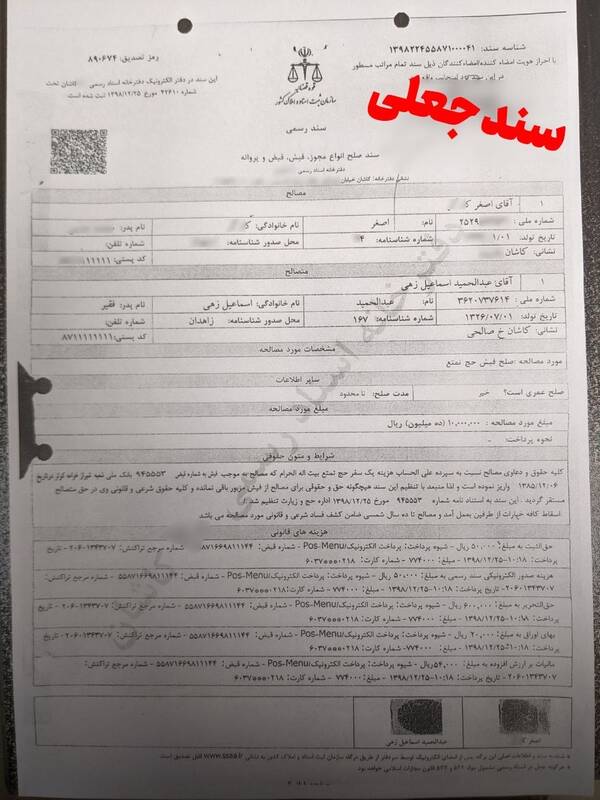 شناسه سند: ۱۳۹۸۲۲۴۵۵۸۷۱۰۰۰۰۴۱
با احراز هویت امضاء کننده/امضاءکنندگان ذیل سند تمام مراتب مسطور
در این
رمز تصدیق: ۸۹۰۶۷۴
این سند در دفتر الکترونیک دفترخانه اسناد رسمی کاشان تحت
شماره ۴۲۶۱۰ مورخ ۱۳۹۸/۱۲/۲۵ ثبت شده است
قوه قضائیه
سازمان ثبت اسناد و املاک کشور
سند جعلی
سند رسمی
سند صلح انواع مجوز، فیش، قبض و پروانه
دفترخانه اسناد رسمی
نشانی دفترخانه: کاشان خیابان
مصالح
۱ آقای اصغر
شماره ملی: ۲۵۲۹ نام: اصغر نام خانوادگی: نام پدر:
تاریخ تولد: ۱/۰۱ شماره شناسنامه: ۴ محل صدور شناسنامه: شماره تلفن:
نشانی: کاشان کد پستی: ۱۱۱۱۱
متصالح
۱ آقای: عبدالحمید اسماعیل زهی
شماره ملی: ۳۶۲۰۷۳۷۶۱۴ نام: عبدالحمید نام خانوادگی: اسماعیل زهی نام پدر: فقیر
تاریخ تولد: ۱۳۲۶/۰۷/۰۱ شماره شناسنامه: ۱۶۷ محل صدور شناسنامه: زاهدان شماره تلفن:
نشانی: کاشان خ صالحی کد پستی: ۸۷۱۱۱۱۱۱۱۱
مشخصات مورد مصالحه
مورد مصالحه: صلح فیش حج تمتع
سایر اطلاعات
صلح عمری است؟ خیر مدت صلح: نا محدود
مبلغ مورد مصالحه
مبلغ مورد مصالحه: ۱۰,۰۰۰,۰۰۰ (ده میلیون) ریال
نحوه پرداخت: -
شرایط و متون حقوقی
کلیه حقوق و دعاوی مصالح نسبت به سپرده علی الحساب هزینه یک سفر حج تمتع بیت اله الحرام که مصالح به موجب فیش به شماره قبض ۹۴۵۵۵۳ بانک ملی شعبه شیراز خوابه کوثر در تاریخ
۱۳۸۵/۱۲/۰۶ واریز نموده است و لذا متعهد با تنظیم این سند هیچگونه حق و حقوقی برای مصالح از فیش مزبور باقی نمانده و کلیه حقوق شرعی و قانونی وی در حق متصالح
مستقر گردید . این سند به استناد نامه شماره ۹۴۵۵۵۳ مورخ ۱۳۹۸/۱۲/۲۵ اداره حج و زیارت تنظیم شد
اسقاط کافه خیارات از طرفین بعمل آمد و مصالح تا ده سال شمسی ضامن کشف فساد شرعی و قانونی مورد مصالحه می باشد
هزینه های قانونی
حق الثبت به مبلغ: ۵۰,۰۰۰ ریال - شیوه پرداخت: پرداخت الکترونیک/Pos-Menu شماره قبض: ۸۷۱۶۶۹۸۱۱۱۴۴ شماره مرجع تراکنش: ۲۰۶۰۱۳۴۳۷۰۷ - تاریخ
پرداخت: ۱۰:۱۸-۱۳۹۸/۱۲/۲۵ - مبلغ: ۷۷۴۰۰۰ - شماره کارت: ۶۰۳۷۰۰۰۰۲۱۸
هزینه صدور الکترونیکی سند رسمی به مبلغ: ۵۰,۰۰۰ ریال - شیوه پرداخت: پرداخت الکترونیک/Pos-Menu - شماره قبض: ۵۵۸۷۱۶۶۹۸۱۱۱۴۴ - شماره مرجع تراکنش:
۲۰۶۰۱۳۴۳۷۰۷ - تاریخ پرداخت: ۱۰:۱۸-۱۳۹۸/۱۲/۲۵ - مبلغ: ۷۷۴۰۰۰ - شماره کارت: ۶۰۳۷۰۰۰۰۲۱۸
حق التحریر به مبلغ: ۶۰۰,۰۰۰ ریال - شیوه پرداخت: پرداخت الکترونیک/Pos-Menu - شماره قبض: ۵۵۸۷۱۶۶۹۸۱۱۱۴۴ - شماره مرجع تراکنش: ۲۰۶۰۱۳۴۳۷۰۷ - تاریخ
پرداخت: ۱۰:۱۸-۱۳۹۸/۱۲/۲۵ - مبلغ: ۷۷۴۰۰۰ - شماره کارت: ۶۰۳۷۰۰۰۰۲۱۸
بهای اوراق به مبلغ: ۲۰,۰۰۰ ریال - شیوه پرداخت: پرداخت الکترونیک/Pos-Menu - شماره قبض: ۵۵۸۷۱۶۶۹۸۱۱۱۴۴ - شماره مرجع تراکنش: ۲۰۶۰۱۳۴۳۷۰۷ - تاریخ
پرداخت: ۱۰:۱۸-۱۳۹۸/۱۲/۲۵ - مبلغ: ۷۷۴۰۰۰ - شماره کارت: ۶۰۳۷۰۰۰۰۲۱۸
مالیات بر ارزش افزوده به مبلغ: ۵۴,۰۰۰ ریال - شیوه پرداخت: پرداخت الکترونیک/Pos-Menu - شماره قبض: ۵۵۸۷۱۶۶۹۸۱۱۱۴۴ - شماره مرجع تراکنش:
۲۰۶۰۱۳۴۳۷۰۷ - تاریخ پرداخت: ۱۰:۱۸-۱۳۹۸/۱۲/۲۵ - مبلغ: ۷۷۴۰۰۰ - شماره کارت: ۶۰۳۷۰۰۰۰۲۱۸
اصغر
عبدالحمید اسماعیل زهی